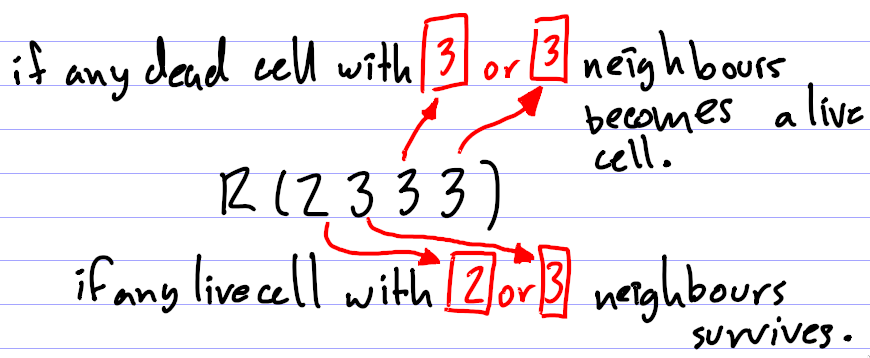 if any dead cell with 3 or 3 neighbours
becomes a live
cell.
R(2 3 3 3)
if any live cell with 2 or 3 neighbours
survives.